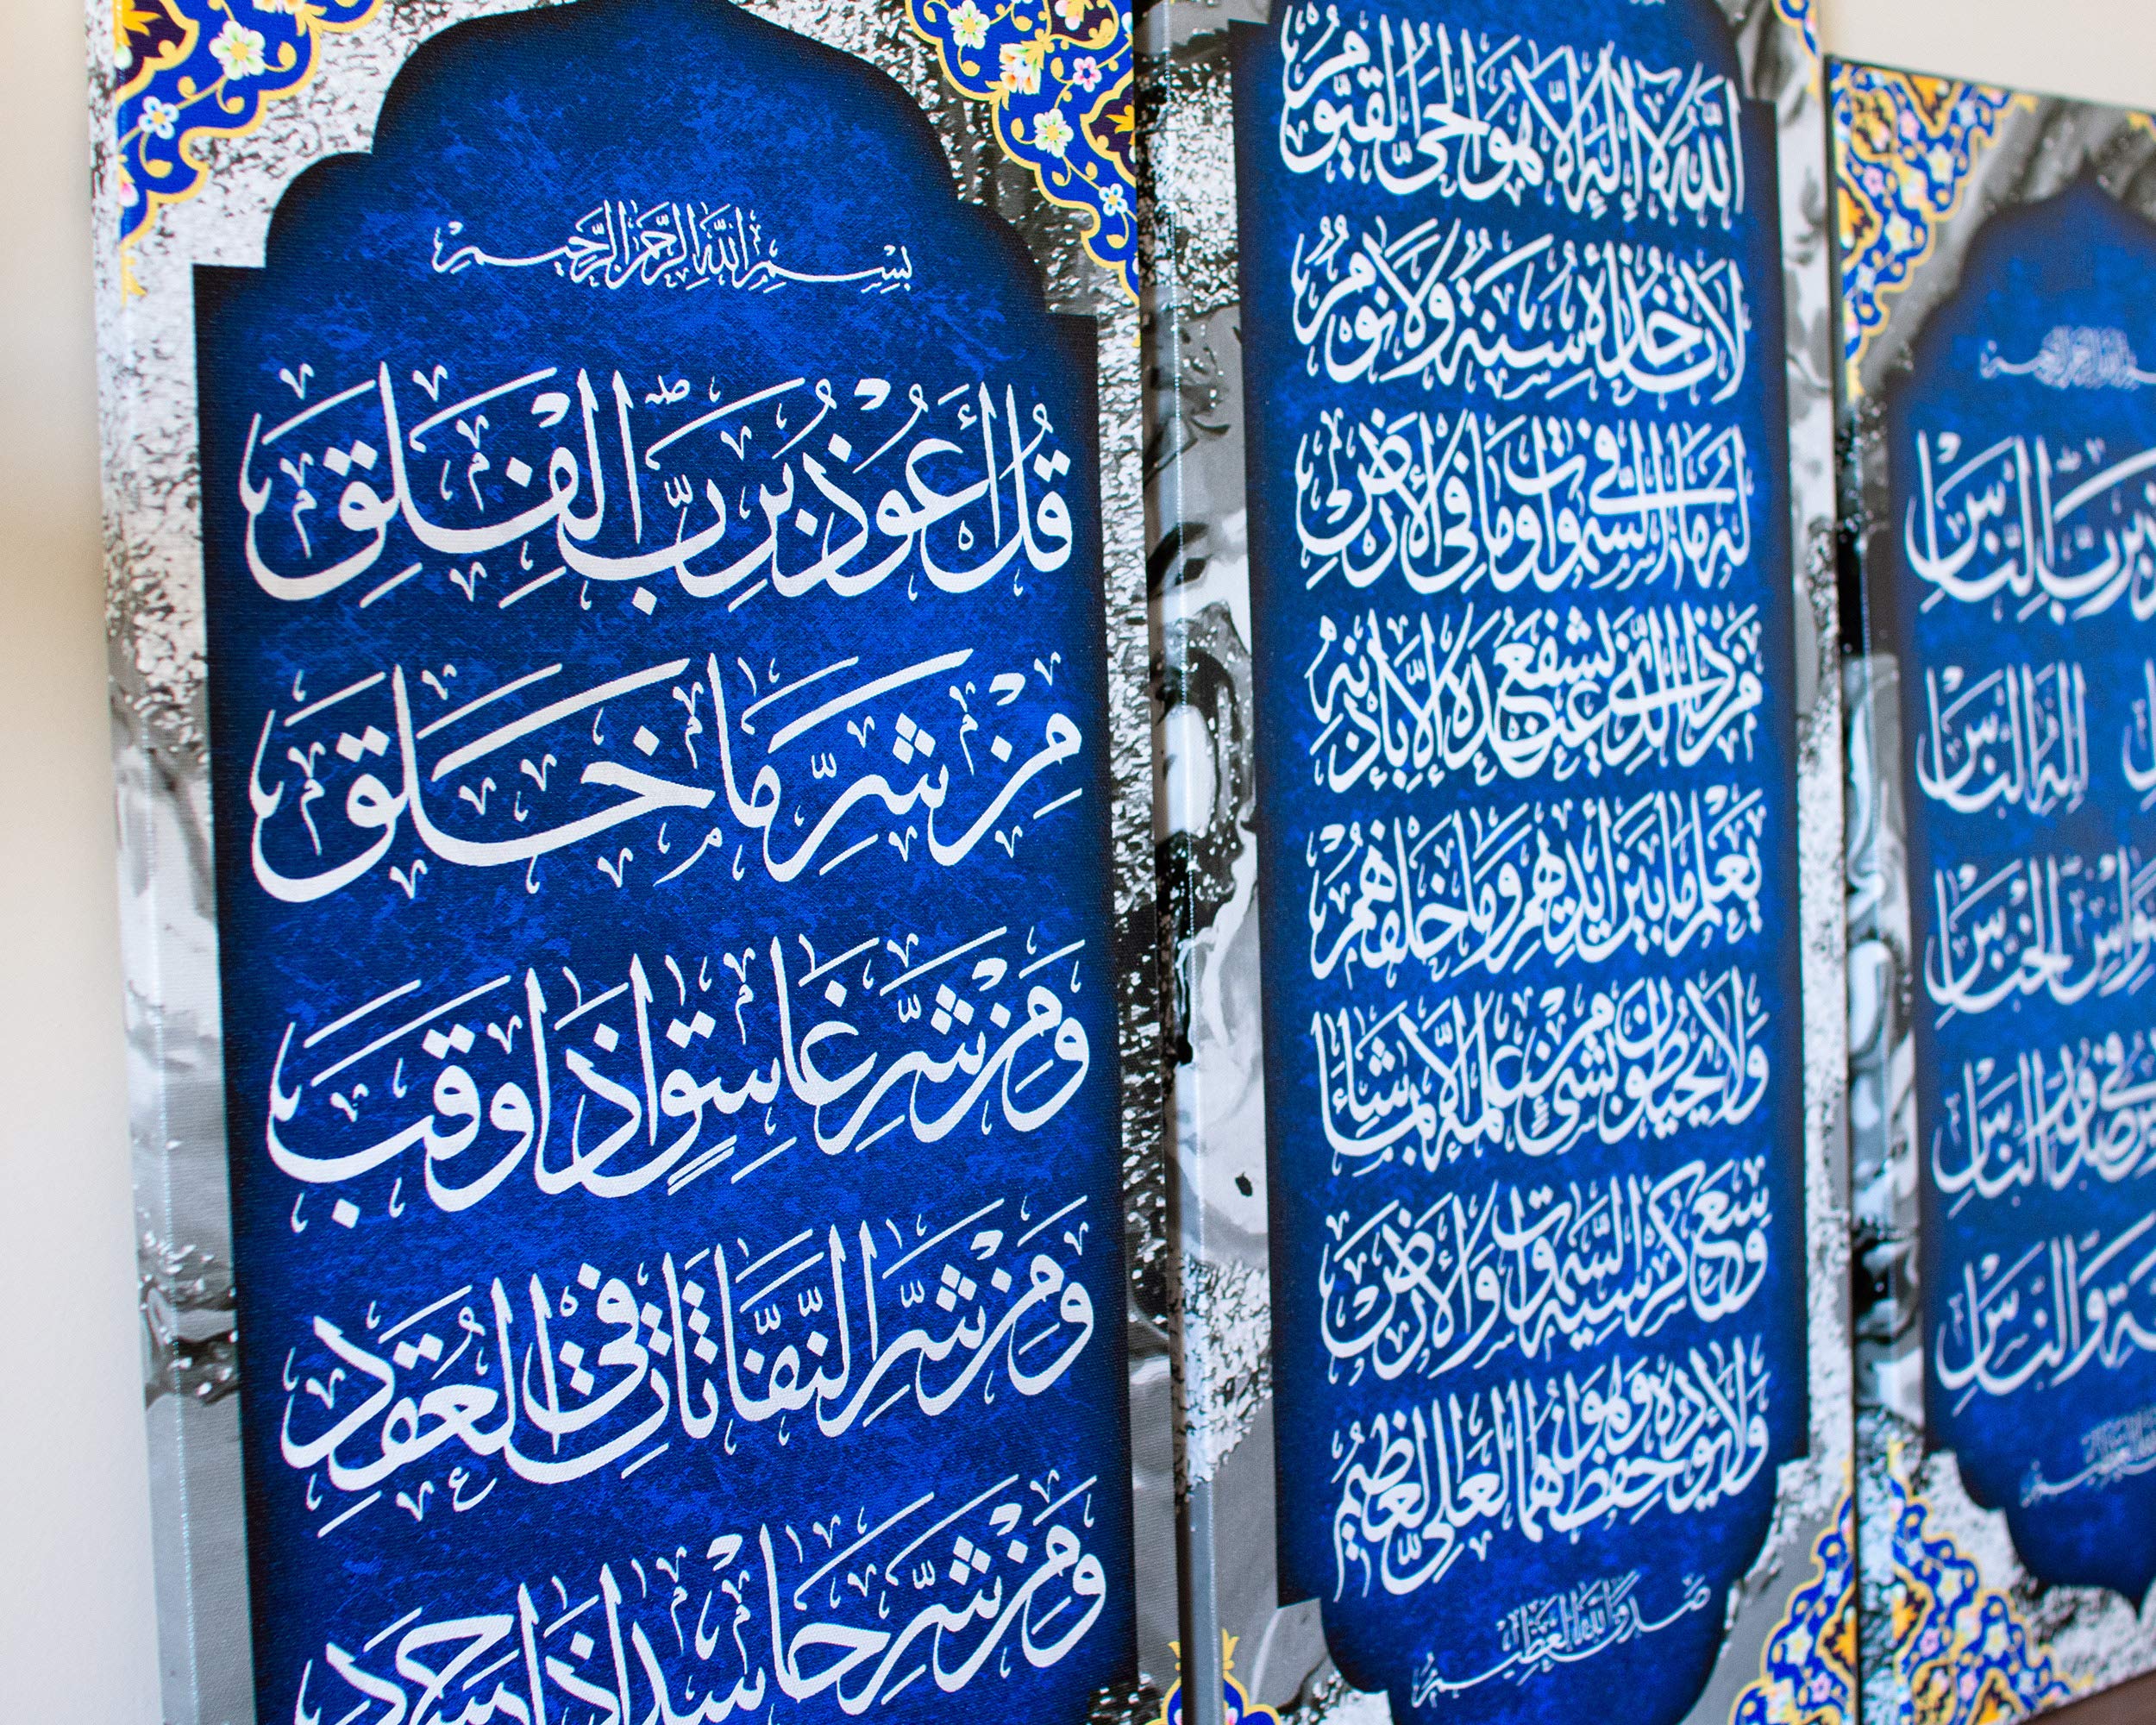 بِسْمِ اللَّهِ الرَّحْمَنِ الرَّحِيمِ
قُلْ أَعُوذُ بِرَبِّ الْفَلَقِ
مِنْ شَرِّ مَا خَلَقَ
وَمِنْ شَرِّ غَاسِقٍ إِذَا وَقَبَ
وَمِنْ شَرِّ النَّفَّاثَاتِ فِي الْعُقَدِ
وَمِنْ شَرِّ حَاسِدٍ إِذَا حَسَدَ
اللَّهُ لَا إِلَهَ إِلَّا هُوَ الْحَيُّ الْقَيُّومُ
لَا تَأْخُذُهُ سِنَةٌ وَلَا نَوْمٌ
لَهُ مَا فِي السَّمَوَاتِ وَمَا فِي الْأَرْضِ
مَنْ ذَا الَّذِي يَشْفَعُ عِنْدَهُ إِلَّا بِإِذْنِهِ
يَعْلَمُ مَا بَيْنَ أَيْدِيهِمْ وَمَا خَلْفَهُمْ
وَلَا يُحِيطُونَ بِشَيْءٍ مِنْ عِلْمِهِ إِلَّا بِمَا شَاءَ
وَسِعَ كُرْسِيُّهُ السَّمَوَاتِ وَالْأَرْضَ
وَلَا يَئُودُهُ حِفْظُهُمَا وَهُوَ الْعَلِيُّ الْعَظِيمُ
صَدَقَ اللَّهُ الْعَظِيمُ
بِرَبِّ النَّاسِ
إِلَهِ النَّاسِ
الْوَسْوَاسِ الْخَنَّاسِ
فِي صُدُورِ النَّاسِ
وَالنَّاسِ